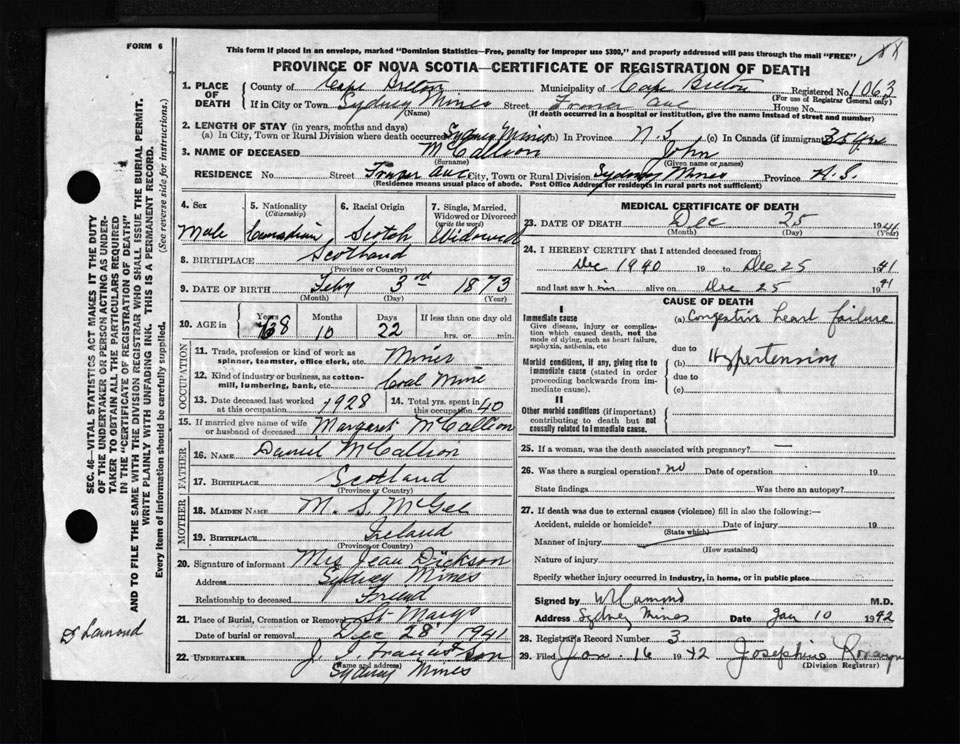 FORM 6
This form if placed in an envelope, marked "Dominion Statistics—Free, penalty for improper use $300," and properly addressed will pass through the mail "FREE"
PROVINCE OF NOVA SCOTIA—CERTIFICATE OF REGISTRATION OF DEATH
1. PLACE OF DEATH County of Cape Breton Municipality of Cape Breton Registered No. 1063
(For use of Registrar General only)
If in City or Town Sydney Mines Street Fraser Ave House No.
(Name) (If death occurred in a hospital or institution, give name instead of street and number)
2. LENGTH OF STAY (in years, months and days)
(a) In City, Town or Rural Division where death occurred Sydney Mines (b) In Province N.S. (c) In Canada (if immigrant) 35 yrs
3. NAME OF DECEASED McCallion John
(Surname) (Given name or names)
RESIDENCE No. Street Fraser Ave City, Town or Rural Division Sydney Mines Province N.S.
(Residence means usual place of abode. Post Office Address for residents in rural parts not sufficient)
4. Sex 5. Nationality (Citizenship) 6. Racial Origin 7. Single, Married, Widowed or Divorced (write the word)
Male Canadian Scotch Widowed
8. BIRTHPLACE Scotland
(Province or Country)
9. DATE OF BIRTH Feby 3rd 1873
(Month) (Day) (Year)
10. AGE in Years Months Days If less than one day
68 10 22 hrs. or min.
OCCUPATION
11. Trade, profession or kind of work as spinner, teamster, office clerk, etc. Miner
12. Kind of industry or business, as cotton-mill, lumbering, bank, etc. Coal Mine
13. Date deceased last worked at this occupation 1928 14. Total yrs. spent in this occupation 40
15. If married give name of wife or husband of deceased Margaret McCallion
FATHER
16. NAME Daniel McCallion
17. BIRTHPLACE Scotland
(Province or Country)
MOTHER
18. MAIDEN NAME M. S. McGee
19. BIRTHPLACE Ireland
(Province or Country)
20. Signature of informant Mrs Jean Dickson
Address Sydney Mines
Relationship to deceased Friend
21. Place of Burial, Cremation or Removal St Marys
Date of burial or removal Dec 28, 1941
22. UNDERTAKER J. J. Francis & Son
(Name and address)
Sydney Mines
MEDICAL CERTIFICATE OF DEATH
23. DATE OF DEATH Dec 25 1941
(Month) (Day) (Year)
24. I HEREBY CERTIFY that I attended deceased from:
Dec 1940 19 to Dec 25 1941
and last saw him alive on Dec 25 1941
CAUSE OF DEATH
I
Immediate cause
Give disease, injury or complication which caused death, not the mode of dying, such as heart failure, asphyxia, asthenia, etc
(a) Congestive heart failure
due to
Morbid conditions, if any, giving rise to immediate cause (stated in order proceeding backwards from immediate cause).
(b) Hypertension
due to
(c)
II
Other morbid conditions (if important) contributing to death but not causally related to immediate cause.
25. If a woman, was the death associated with pregnancy? —
26. Was there a surgical operation? no Date of operation 19
State findings Was there an autopsy?
27. If death was due to external causes (violence) fill in also the following:—
Accident, suicide or homicide? Date of injury 19
(State which)
Manner of injury
(How sustained)
Nature of injury
Specify whether injury occurred in industry, in home, or in public place
Signed by M.D.
Address Sydney Mines Date Jan 10 1942
28. Registrar's Record Number 3
29. Filed Jan. 16 1942 Josephine
(Division Registrar)
SEC. 46—VITAL STATISTICS ACT MAKES IT THE DUTY
OF THE UNDERTAKER OR PERSON ACTING AS UNDER-
TAKER TO OBTAIN ALL THE PARTICULARS REQUIRED
IN THE "CERTIFICATE OF REGISTRATION OF DEATH"
AND TO FILE THE SAME WITH THE DIVISION REGISTRAR WHO SHALL ISSUE THE BURIAL PERMIT.
WRITE PLAINLY WITH UNFADING INK. THIS IS A PERMANENT RECORD.
Every item of information should be carefully supplied. (See reverse side for instructions.)